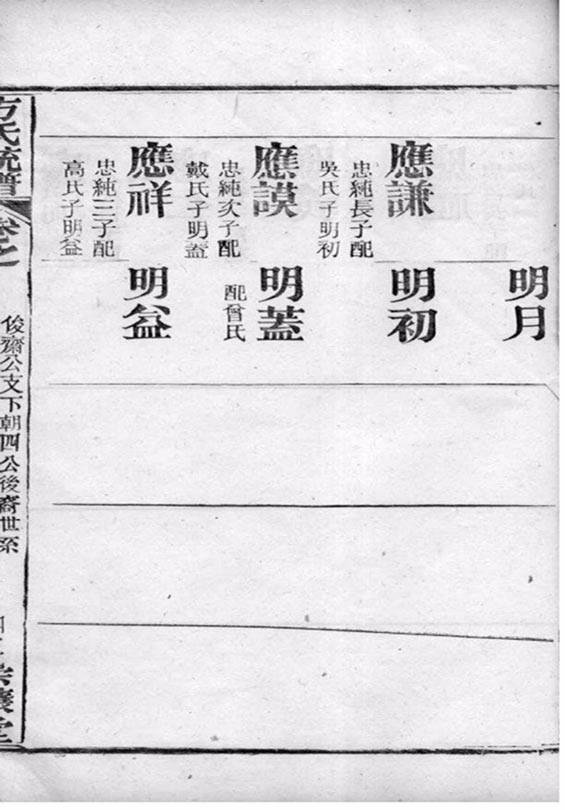 明月
應謙
忠純長子配
吳氏子明初
明初
應謨
忠純次子配
戴氏子明蓋
明蓋
配曾氏
應祥
忠純三子配
高氏子明益
明益
方氏統譜
卷之
俊齋公支下朝四公後裔世系